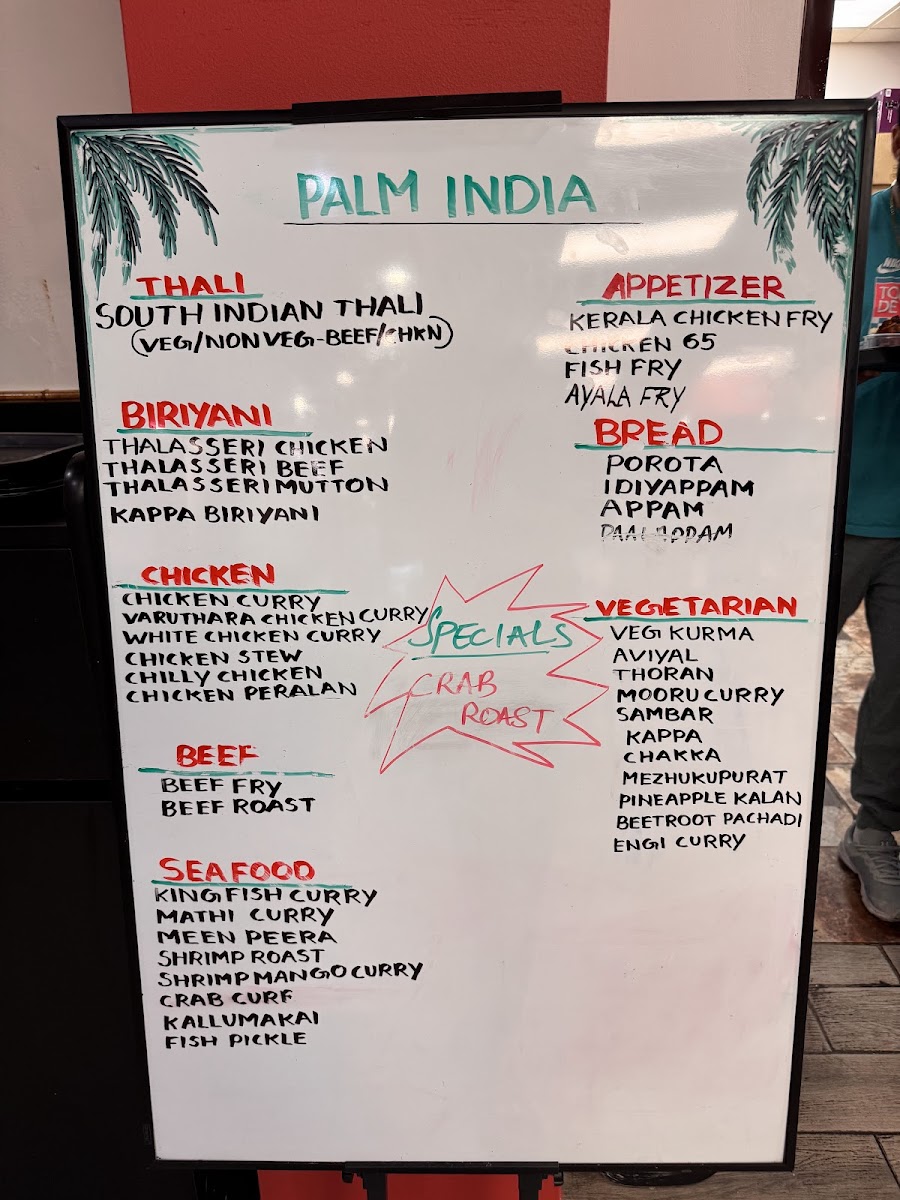 PALM INDIA
THALI
SOUTH INDIAN THALI
(VEG/NONVEG-BEEF/CHKN)
BIRIYANI
THALASSERI CHICKEN
THALASSERI BEEF
THALASSERI MUTTON
KAPPA BIRIYANI
CHICKEN
CHICKEN CURRY
VARUTHARA CHICKEN CURRY
WHITE CHICKEN CURRY
CHICKEN STEW
CHILLY CHICKEN
CHICKEN PERALAN
BEEF
BEEF FRY
BEEF ROAST
SEAFOOD
KINGFISH CURRY
MATHI CURRY
MEEN PEERA
SHRIMP ROAST
SHRIMP MANGO CURRY
CRAB
KALLUMAKAI
FISH PICKLE
SPECIALS
CRAB
ROAST
APPETIZER
KERALA CHICKEN FRY
CHICKEN 65
FISH FRY
AYALA FRY
BREAD
POROTA
IDIYAPPAM
APPAM
VEGETARIAN
VEG KURMA
AVIYAL
THORAN
MOORU CURRY
SAMBAR
KAPPA
CHAKKA
MEZHUKUPURAT
PINEAPPLE KALAN
BEETROOT PACHADI
ENGI CURRY